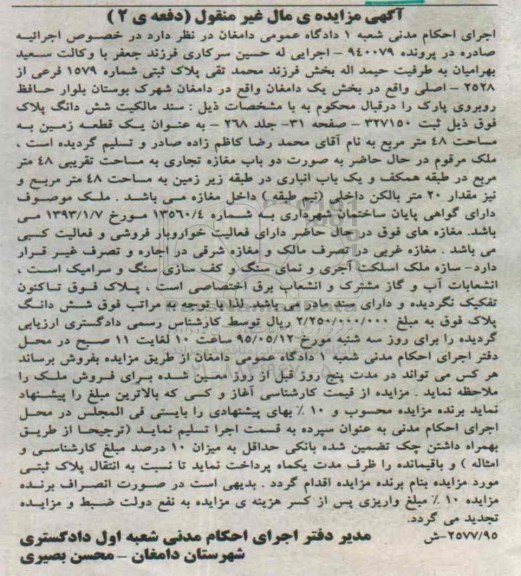 آگهی مزایده ی مال غیر منقول (دفعه ی ۲)
اجرای احکام مدنی شعبه ۱ دادگاه عمومی دامغان در نظر دارد در خصوص اجرائیه
صادره در پرونده ۹۴۰۰۷۹ - اجرایی له حسین سرکاری فرزند جعفر با وکالت سعید
بهرامیان به طرفیت حیمد اله بخش فرزند محمد تقی پلاک ثبتی شماره ۱۵۷۹ فرعی از
۲۵۲۸ - اصلی واقع در بخش یک دامغان واقع در دامغان شهرک بوستان بلوار حافظ
روبروی پارک را درقبال محکوم به با مشخصات ذیل : سند مالکیت شش دانگ پلاک
فوق ذیل ثبت ۳۲۷۱۵۰ - صفحه ۳۱- جلد ۲۶۸ - به عنوان یک قطعه زمین به
مساحت ۴۸ متر مربع به نام آقای محمد رضا کاظم زاده صادر و تسلیم گردیده است ،
ملک مرقوم در حال حاضر به صورت دو باب مغازه تجاری به مساحت تقریبی ۴۸ متر
مربع در طبقه همکف و یک باب انباری در طبقه زیر زمین به مساحت ۴۸ متر مربع و
نیز مقدار ۲۰ متر بالکن داخلی (نیم طبقه) داخل مغازه می باشد . ملک موصوف
دارای گواهی پایان ساختمان شهرداری به شماره ۱۳۵۶۰/۴ مورخ ۱۳۹۳/۱/۷ می
باشد. مغازه های فوق در حال حاضر دارای فعالیت خواروبار فروشی و فعالیت کسبی
می باشد . مغازه غربی در تصرف مالک و مغازه شرقی در اجاره و تصرف غیر قرار
دارد- سازه ملک اسلکت آجری و نمای سنگ و کف سازی سنگ و سرامیک است ،
انشعابات آب و گاز مشترک و انشعاب برق اختصاصی است ، پلاک فوق تاکنون
تفکیک نگردیده و دارای سند مادر می باشد. لذا با توجه به مراتب فوق شش دانگ
پلاک فوق به مبلغ ۲/۲۵۰/۰۰۰/۰۰۰ ریال توسط کارشناس رسمی دادگستری ارزیابی
گردیده را برای روز سه شنبه مورخ ۹۵/۰۵/۱۲ ساعت ۱۰ لغایت ۱۱ صبح در محل
دفتر اجرای احکام مدنی شعبه ۱ دادگاه عمومی دامغان از طریق مزایده بفروش برساند
هر کس می تواند در مدت پنج روز قبل از روز معین شده برای فروش ملک را
ملاحظه نماید . مزایده از قیمت کارشناسی آغاز و کسی که بالاترین مبلغ را پیشنهاد
نماید برنده مزایده محسوب و ۱۰ ٪ بهای پیشنهادی را بایستی فی المجلس در محل
اجرای احکام مدنی به عنوان سپرده به قسمت اجرا تسلیم نماید (ترجیحا از طریق
بهمراه داشتن چک تضمین شده بانکی حداقل به میزان ۱۰ درصد مبلغ کارشناسی و
امثاله ) و باقیمانده را ظرف مدت یکماه پرداخت نماید تا نسبت به انتقال پلاک ثبتی
مورد مزایده بنام برنده مزایده اقدام گردد . بدیهی است در صورت انصراف برنده
مزایده ۱۰ ٪ مبلغ واریزی پس از کسر هزینه ی مزایده به نفع دولت ضبط و مزایده
تجدید می گردد.
۲۵۷۷/۹۵-ش مدیر دفتر اجرای احکام مدنی شعبه اول دادگستری
شهرستان دامغان – محسن بصیری